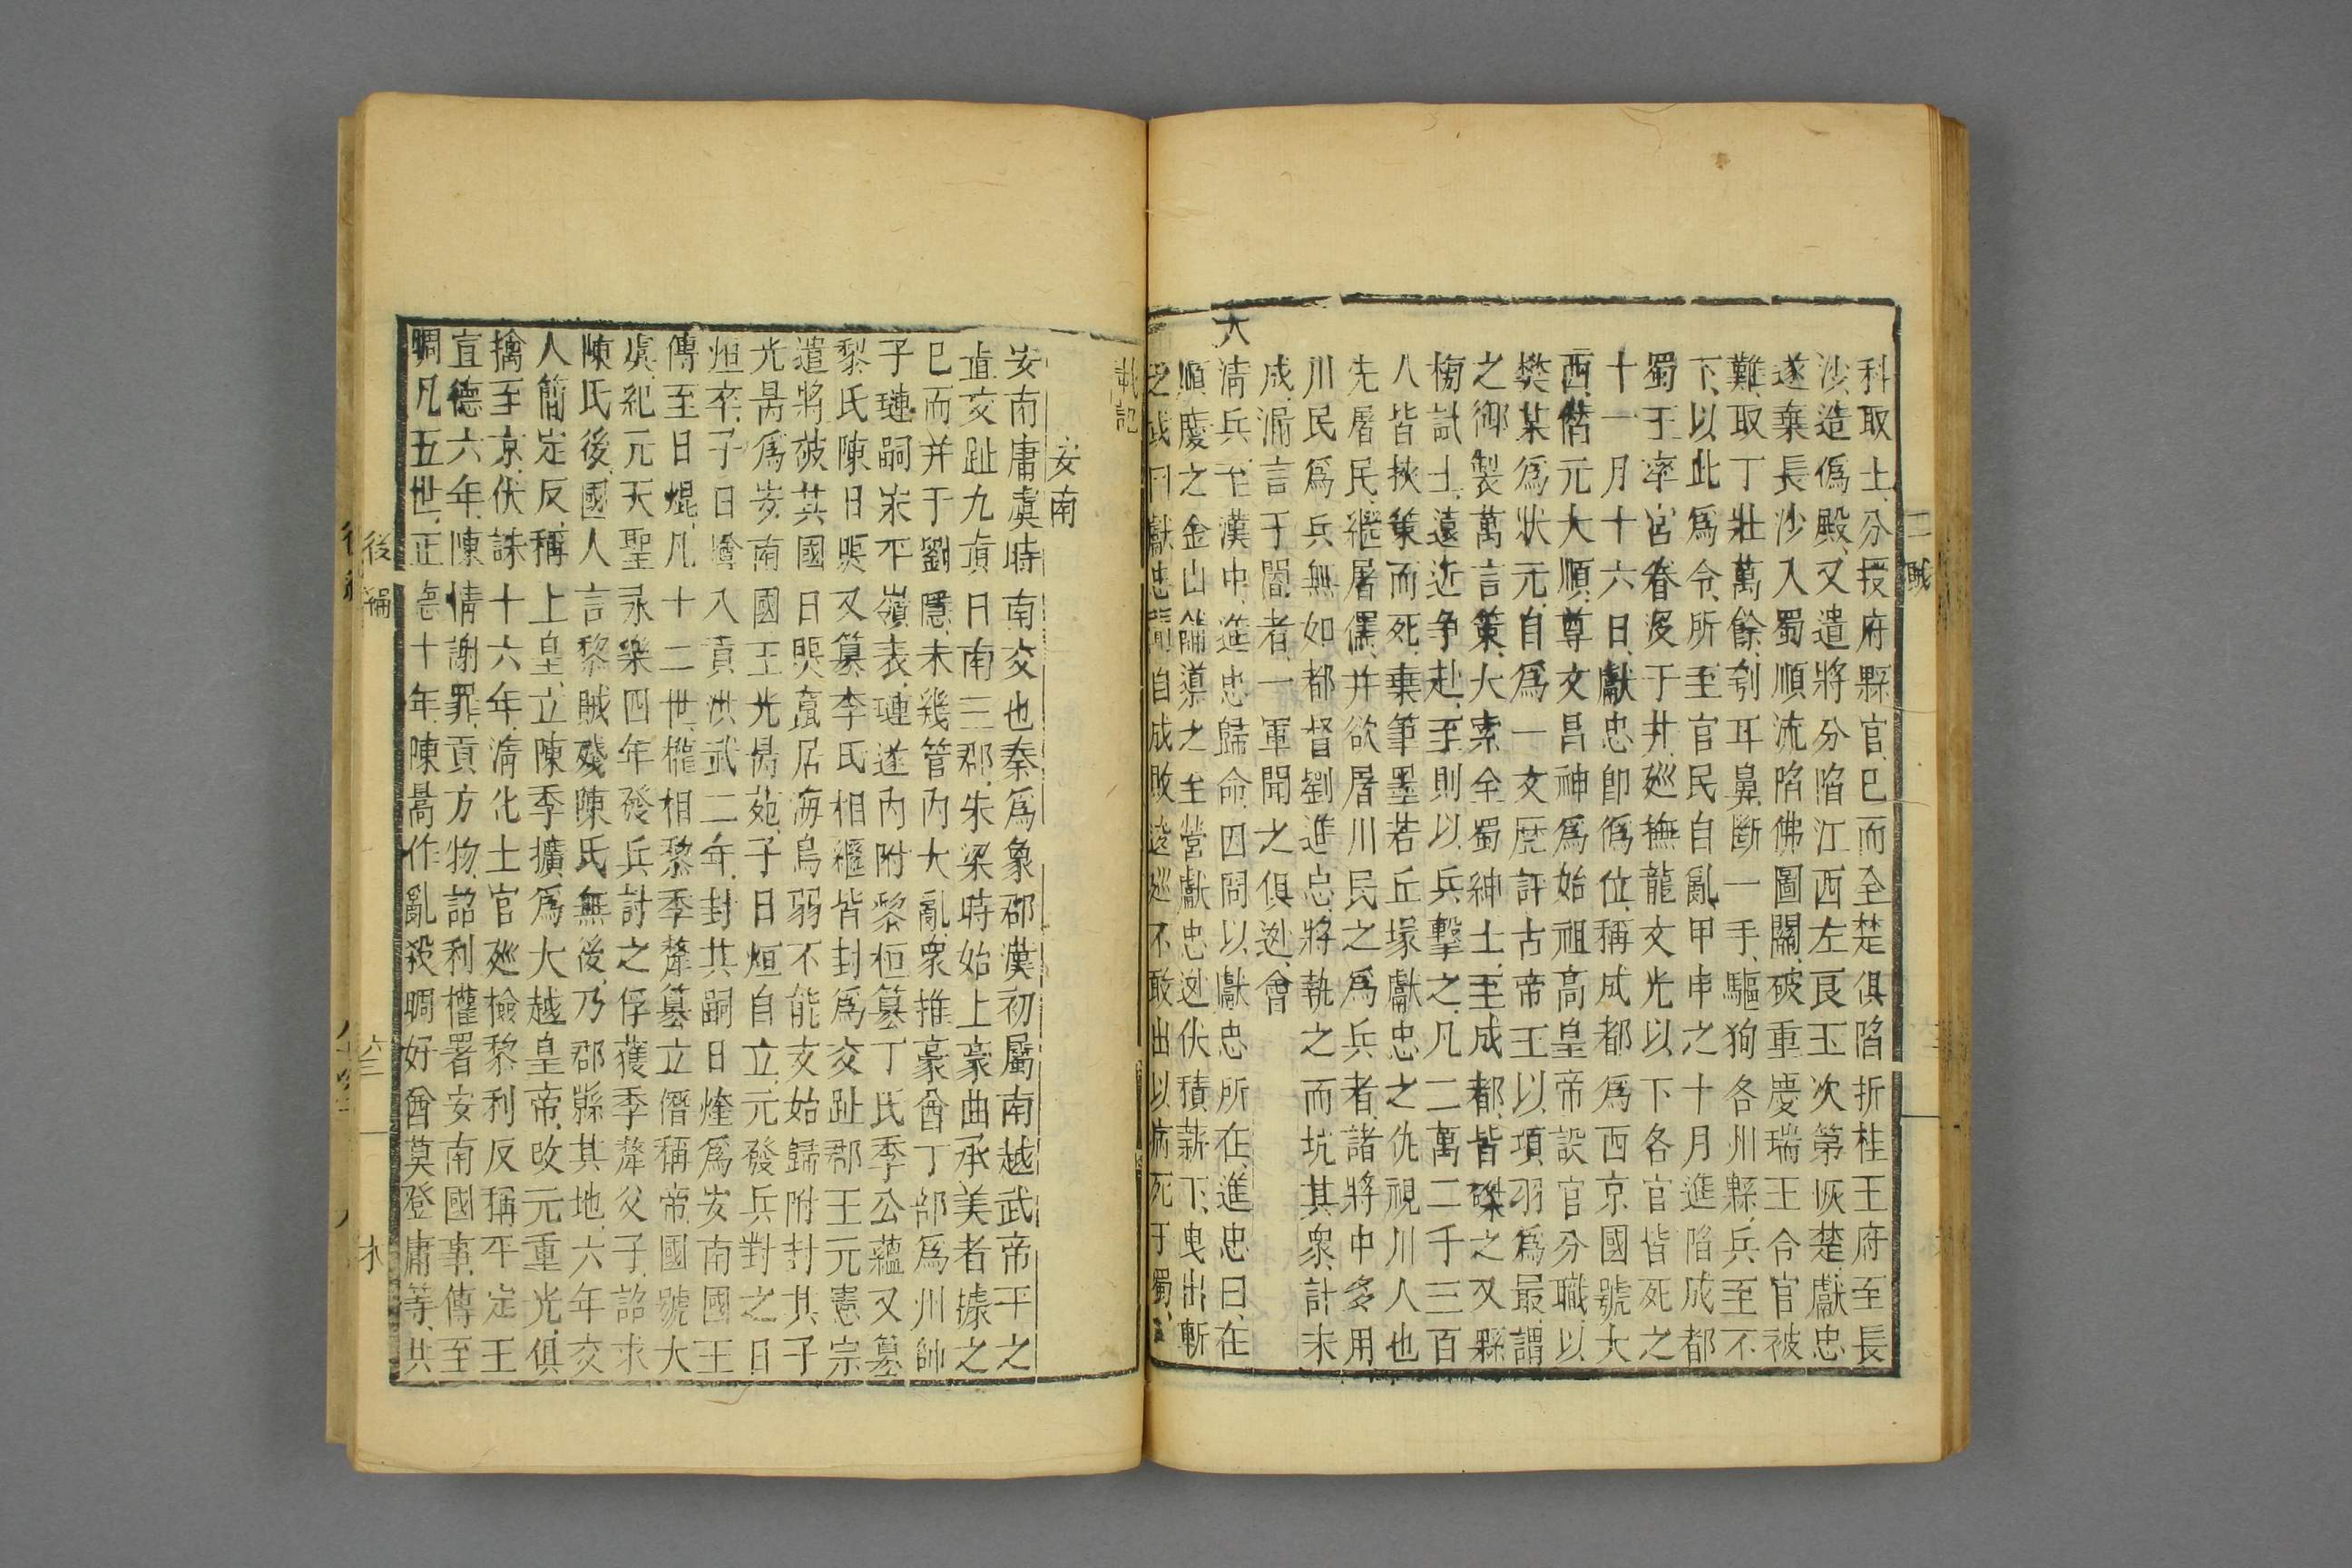 二賊
科取士、分授府縣官、已而全楚俱陷折桂王府至長
沙、造僞殿、又遣將分陷江西左良玉次第恢楚、獻忠
遂棄長沙入蜀順流陷佛圖關、破重慶瑞王令官被
難、取丁壯萬餘、刳耳鼻、斷一手、驅狗各州縣、兵至不
下、以此爲令、所至官民自亂、甲申之十月進陷成都
蜀王率宮眷沒于井、廵撫龍文光以下各官皆死之
十一月十六日、獻忠卽僞位、稱成都爲西京國號大
西、僭元大順、尊文昌神爲始祖高皇帝設官分職、以
樊某爲狀元、自爲一文歷評古帝王以項羽爲最、謂
之御製萬言策、大索全蜀紳士、至成都、皆磔之又縣
榜試士、遠近爭赴、至則以兵擊之、凡二萬二千三百
八皆挾策而死、棄筆墨若丘塚獻忠之仇視川人也
先屠民、繼屠儒、并欲屠川民之爲兵者、諸將中多用
川民爲兵無如都督劉進忠、將執之而坑其衆、計未
成、漏言于閽者、一軍聞之俱逃、會
大淸兵至漢中、進忠歸命、因問以獻忠所在、進忠曰、在
順慶之金山舖導之至營獻忠逃伏積薪下、曳出斬
之或曰獻忠聞自成敗逡廵不敢出以病死于蜀、
載記
安南
安南庸虞時南交也秦爲象郡漢初屬南越武帝平之
直交趾九眞日南三郡、朱梁時始上豪曲承美者據之
已而并于劉隱、未幾管內大亂、衆推豪酋丁部爲州帥
子璉嗣宋平嶺表、璉遂內附黎桓簒丁氏季公蘊又簒
黎氏陳日煚又簒李氏相繼皆封爲交趾郡王元憲宗
遣將破其國日煚竄居海島弱不能支始歸附封其子
光昺爲安南國王光昺苑、子日烜自立、元發兵對之日
烜卒、子日㷃入貢洪武二年、封其嗣日煃爲安南國王
傳至日焜、凡十二世、權相黎季犛簒立僭稱帝國號大
虞、紀元天聖永樂四年發兵討之俘獲季犛父子、詔求
陳氏後、國人言黎賊殘陳氏無後、乃郡縣其地、六年交
人簡定反、稱上皇、立陳季擴爲大越皇帝、改元重光、俱
擒至京、伏誅十六年、淸化土官廵檢黎利反稱平定王
宣德六年、陳情謝罪、貢方物、詔利權署安南國事、傳至
晭凡五世、正德十年、陳暠作亂殺晭好酋莫登庸等、共
後編
六三